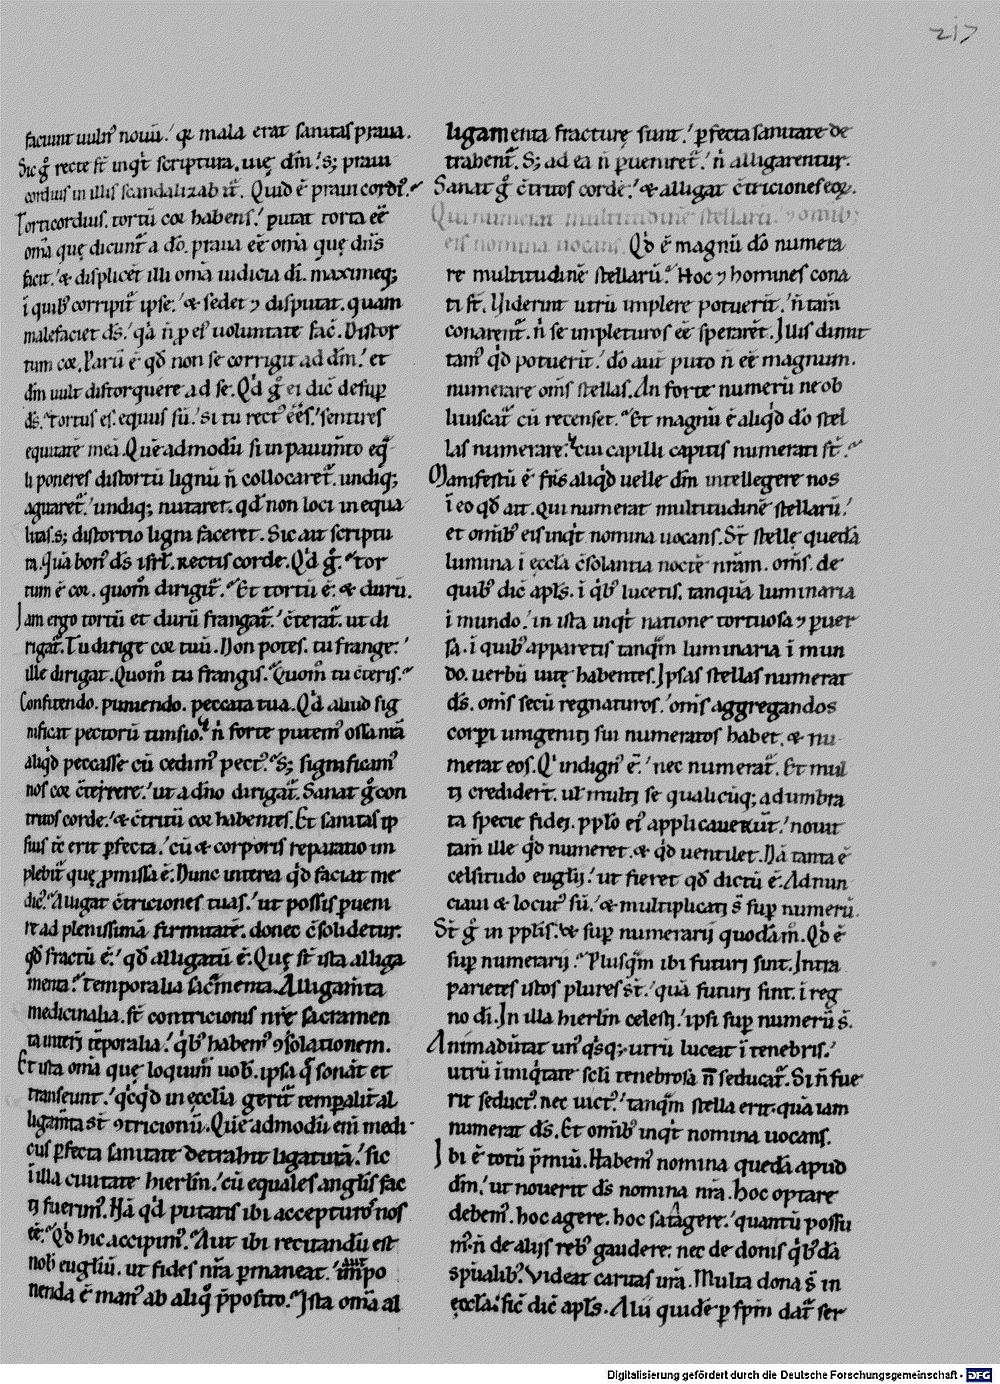 217
faciunt uuln᷒ nouū.' q̄ mala erat sanitas praua.
Sic g̊ recte st̄ inqͥt scriptura. uię dn̄i.' s; praui
cordius in illis scandalizabit̄. Quid ē praui cordi᷒.
Torticordius. tortū cor habens.' putat torta eē
om̄a quę dicunt̄ a dō. praua eē om̄a quę ds̄
facit.' & displicēt illi om̄a iudicia dī. maximeq;
ī quib᷒ corripit̄ ipse.' & sedet ⁊ disputat. quam
malefaciet ds̄.' qͥa n̄ ꝓ ei᷒ uoluntate fac̄. Distor
tum cor. Parū ē qd̄ non se corrigit ad dn̄m.' et
dn̄m uult distorquere ad se. Qͥd g̊ ei dic̄ desup̱
ds̄. Tortus es. equus sū.' si tu rect᷒ eēs.' sentires
equitatē meā. Quē admodū si in pauim̄to eq̄
li poneres distortū lignū n̄ collocaret̄. undiq;
aguaret̄.' undiq; nutaret. qd̄ non loci inequa
litas. s; distortio ligni faceret. Sic ait scriptu
ra. Quā bon᷒ ds̄ isrl̄. rectis corde. Qͥd g̊. tor
tum ē cor. quom̊ dirigit̄. Et tortū ē. & durū.
Jam ergo tortū et durū frangat̄.' c̄terat̄. ut di
rigat̄. Tu dirige cor tuū. Non potes. tu frange.'
ille dirigat. Quom̊ tu frangis. Quom̊ tu c̄teris.
Confitendo. puniendo. peccata tua. Qͥd aliud sig
nificat pectorū tunsio. n̄ forte putem᷒ ossa n̄ra
aliqͥd peccasse cū cedim᷒ pect᷒. S; significam᷒
nos cor c̄terere.' ut a dn̄o dirigat̄. Sanat g̊ con
tritos corde.' & c̄tritū cor habentes. Et sanitas ip
sius tc̄ erit p̱fecta.' cū & corporis reparatio im
plebit̄ quę p̱missa ē. Nunc interea qͥd faciat me
dic᷒. Alligat c̄triciones tuas.' ut possis p̱ueni
re ad plenissimā firmitatē. donec c̄solidetur.
qd̄ fractū ē.' qd̄ alligatū ē. Quę st̄ ista alliga
menta. temporalia sac̄menta. Alligam̄ta
medicinalia. st̄ contricionis nr̄e sacramen
ta interī tēporalia.' qͥb᷒ habem᷒ ⁊solationem.
Et ista om̄a quę loquim̄ uob̄. ipsa q̄ sonāt et
transeunt.' qͥcqͥd in ecclīa gerit̄ temp̱alit̄ al
ligam̄ta st̄ ⁊tricionū. Quē admodū eni medi
cus p̱fecta sanitate detrahit ligaturā.' sic
ī illa ciuitate hierlm̄.' cū equales angl̄is fac
ti fuerim᷒. Nā qͥd putatis ibi accepturo᷒ nos
eē. Qͥd hic accipim᷒. Aut ibi recitandū est
nob̄ euglīū. ut fides nr̄a p̱maneat.' aut īmpo
nenda ē man᷒ ab aliq̊ p̄posito. Ista om̄a al
ligamenta fracturę sunt.' p̱fecta sanitate de
trahent̄. S; ad ea n̄ p̱ueniret̄.' n̄ alligarentur.
Sanat g̊ c̄tritos corde.' & alligat c̄triciones eoꝝ.
Qui numerat multitudinē stellarū.' ⁊ omib;
eis nomina uocans. Qͥd ē magnū dō numera
re multitudinē stellarū. Hoc ⁊ homines cona
ti st̄. Uiderint utrū implere potuerīt.' n̄ tam̄
conarent̄. n̄ se impleturos eē sperarēt. Illis dimit
tam᷒ qͥd potuerīt.' dō aut̄ puto n̄ eē magnum.
numerare om̄s stellas. An forte numerū ne ob
liuiscat̄ cū recenset. Et magnū ē aliqͥd dō stel
las numerare. cui capilli capitis numerati st̄.
Manifestū ē frs̄ aliqͥd uelle dn̄m intellegere nos
ī eo qd̄ ait. Qui numerat multitudinē stellarū.'
et omib᷒ eis inqͥt nomina uocans. St̄ stellę quedā
lumina ī eccl̄a c̄solantia noctē nr̄am. om̄s. de
quib᷒ dic̄ apl̄s. ī qͥb᷒ lucetis. tanquā luminaria
ī mundo.' in ista inqͥt natione tortuosa ⁊ p̱uer
sa. ī quib᷒ apparetis tanqͣm luminaria ī mun
do. uerbū uitę habentes. Ipsas stellas numerat
ds̄. om̄s secū regnaturos.' om̄s aggregandos
corp̱i unigeniti sui numeratos habet. & nu
merat eos. Qͥ indign᷒ ē.' nec numerat̄. Et mul
ti credider̄t. ul̄ multi se qualicūq; adumbra
ta specie fidei. pp̱lo ei᷒ applicauerunt.' nouit
tam̄ ille qͥd numeret. & qͥd uentilet. Nā tanta ē
celsitudo euglīi.' ut fieret qd̄ dictū ē. Adnun
ciaui & locut᷒ sū.' & multiplicati s̄ sup̱ numerū.
St̄ g̊ in pp̱lis. & sup̱ numerarii quodām̊. Qͥd ē
sup̱ numerarii. Plusqͣm ibi futuri sunt. Intra
parietes istos plures st̄.' quā futuri sunt. ī reg
no dī. In illa hierlm̄ celesti.' ipsi sup̱ numerū s̄.
Animadūtat un᷒ qͥsq;.' utrū luceat ī tenebris.'
utrū ī iniqͥtate sc̄li tenebrosa n̄ seducat̄. Si n̄ fue
rit seduct᷒. nec uict᷒.' tanqͣm stella erit. quā iam
numerat ds̄. Et omib᷒ inqͥt nomina uocans.
Ibi ē totū p̄miū. Habem᷒ nomina quedā apud
dn̄m.' ut nouerit ds̄ nomina nr̄a. hoc optare
debem᷒. hoc agere. hoc satagere.' quantū possu
m᷒. n̄ de aliis reb᷒ gaudere. nec de donis qͥb᷒dā
spūalib᷒. Videat caritas ur̄a. Multa dona s̄ in
eccl̄a.' sic̄ dic̄ apl̄s. Alii quidē p̱ spm̄ dat̄ ser
Digitalisierung gefördert durch die Deutsche Forschungsgemeinschaft - DFG